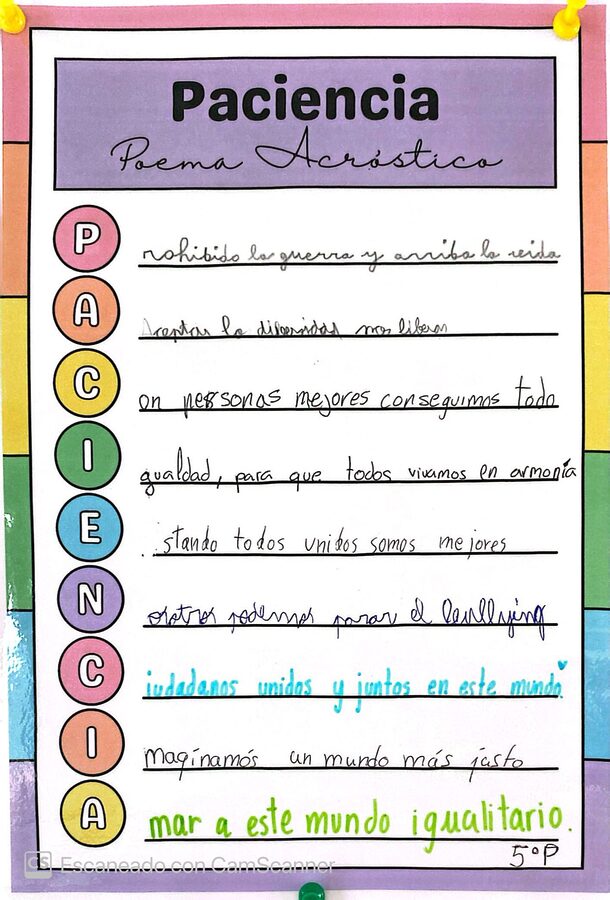 Paciencia
Poema Acróstico
P rohibido la guerra y arriba la vida
A Aceptar la diversidad nos liberan
C on personas mejores conseguimos todo
I gualdad, para que todos vivamos en armonía
E stando todos unidos somos mejores
N osotros podemos parar el bullying
C iudadanos unidos y juntos en este mundo
I maginamós un mundo más justo
A mar a este mundo igualitario.
5ºP
CS Escaneado con CamScanner